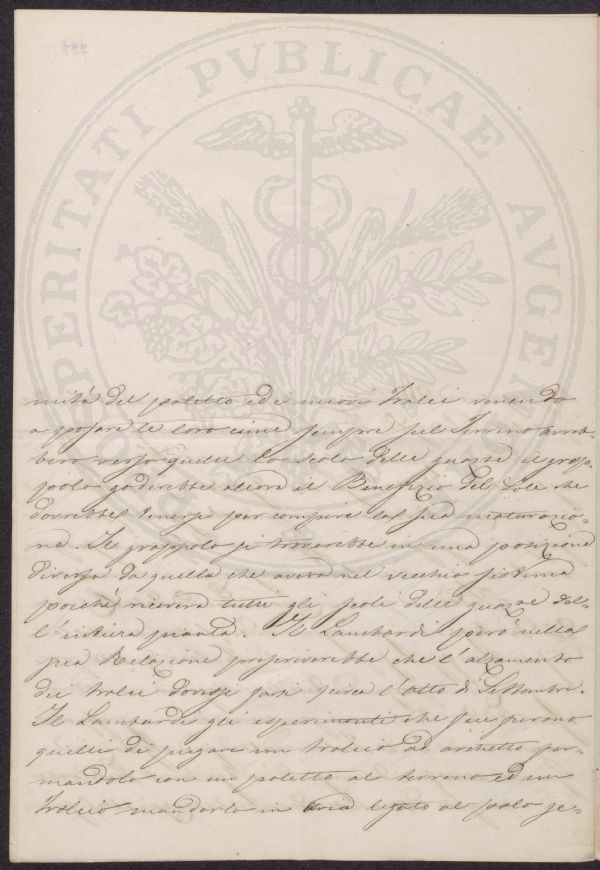 PROSPERITATI PVBLICAE AVGENDAE
mità del paletto ed i nuovi Tralci venendo
a posare le loro cime sempre sul Terreno avreb-
bero verso quelle lo scolo delle guazze il grap-
polo goderebbe allora il Benefizio del Sole che
dovrebbe per compire la sua maturazio-
ne. Il grappolo si troverebbe in una posizione
diversa da quella che aveva nel vecchio sistema
poiché riceveva tutti gli scoli delle guazze dal-
l'intiera pianta. Il Lambardi però nella
sua Relazione preferirebbe che l'alzamento
dei tralci dovesse farsi circa l'otto di Settembre.
Il Lambardi gli esperimenti che furono
quelli di piegare un tralcio ad archetto fer-
mandolo con un paletto al terreno ed un
Tralcio mandarlo in aria legato al palo se-